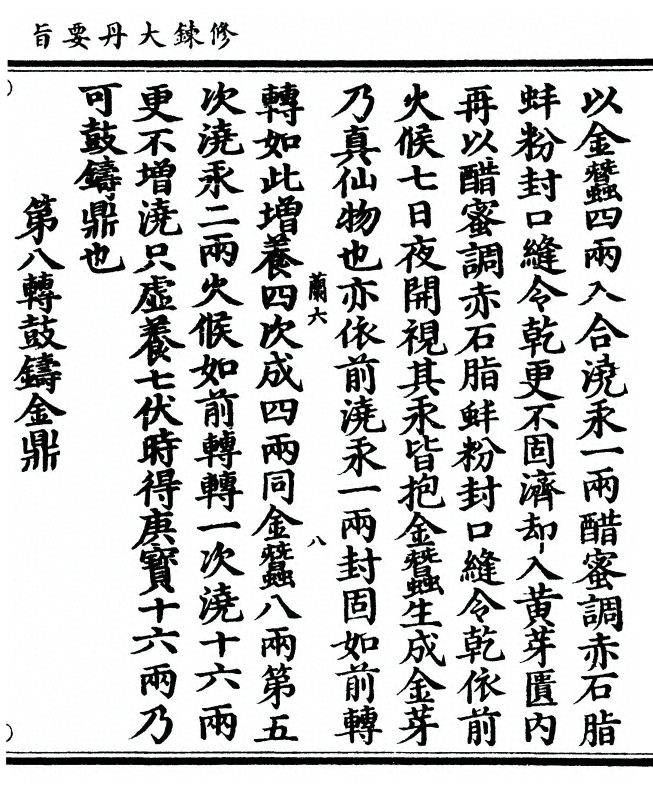 修鍊大丹要旨
以金蠶四兩入合澆汞一兩醋蜜調赤石脂
蚌粉封口縫令乾更不固濟却入黃芽匱内
再以醋蜜調赤石脂蚌粉封口縫令乾依前
火候七日夜開視其汞皆抱金蠶生成金芽
乃真仙物也亦依前澆汞一兩封固如前轉
蘭六
八
轉如此增養四次成四兩同金蠶八兩第五
次澆汞二兩火候如前轉轉一次澆十六兩
更不增澆只虛養七伏時得庚寶十六兩乃
可鼓鑄鼎也
第八轉鼓鑄金鼎